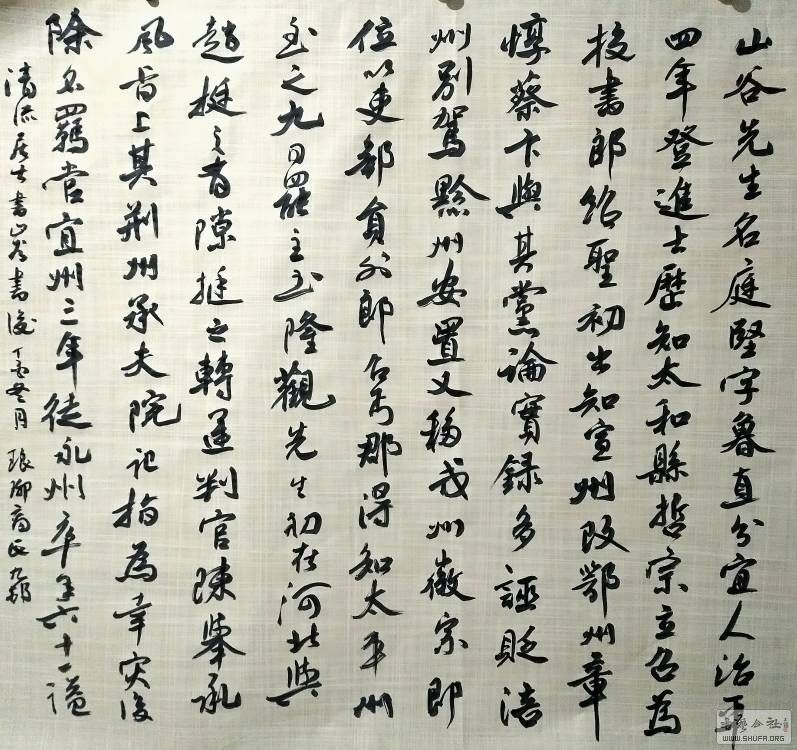 山谷先生名庭堅字魯直分宜人治平
四年登進士歷知太和縣哲宗立召為
校書郎紹聖初出知宣州改鄂州章
惇蔡卞與其黨論實録多誣貶涪
州別駕黔州安置又移戎州徽宗即
位以吏部員外郎召丐郡得知太平州
至之九日罷主玉隆觀先生初在河北與
趙挺之有隙挺之轉運判官陳舉承
風旨上其荆州承天院記指為幸灾復
除名羈管宜州三年徒永州卒年六十一謚
清流居士書山谷書後丁酉冬月琅琊
WWW.SHUFA.ORG